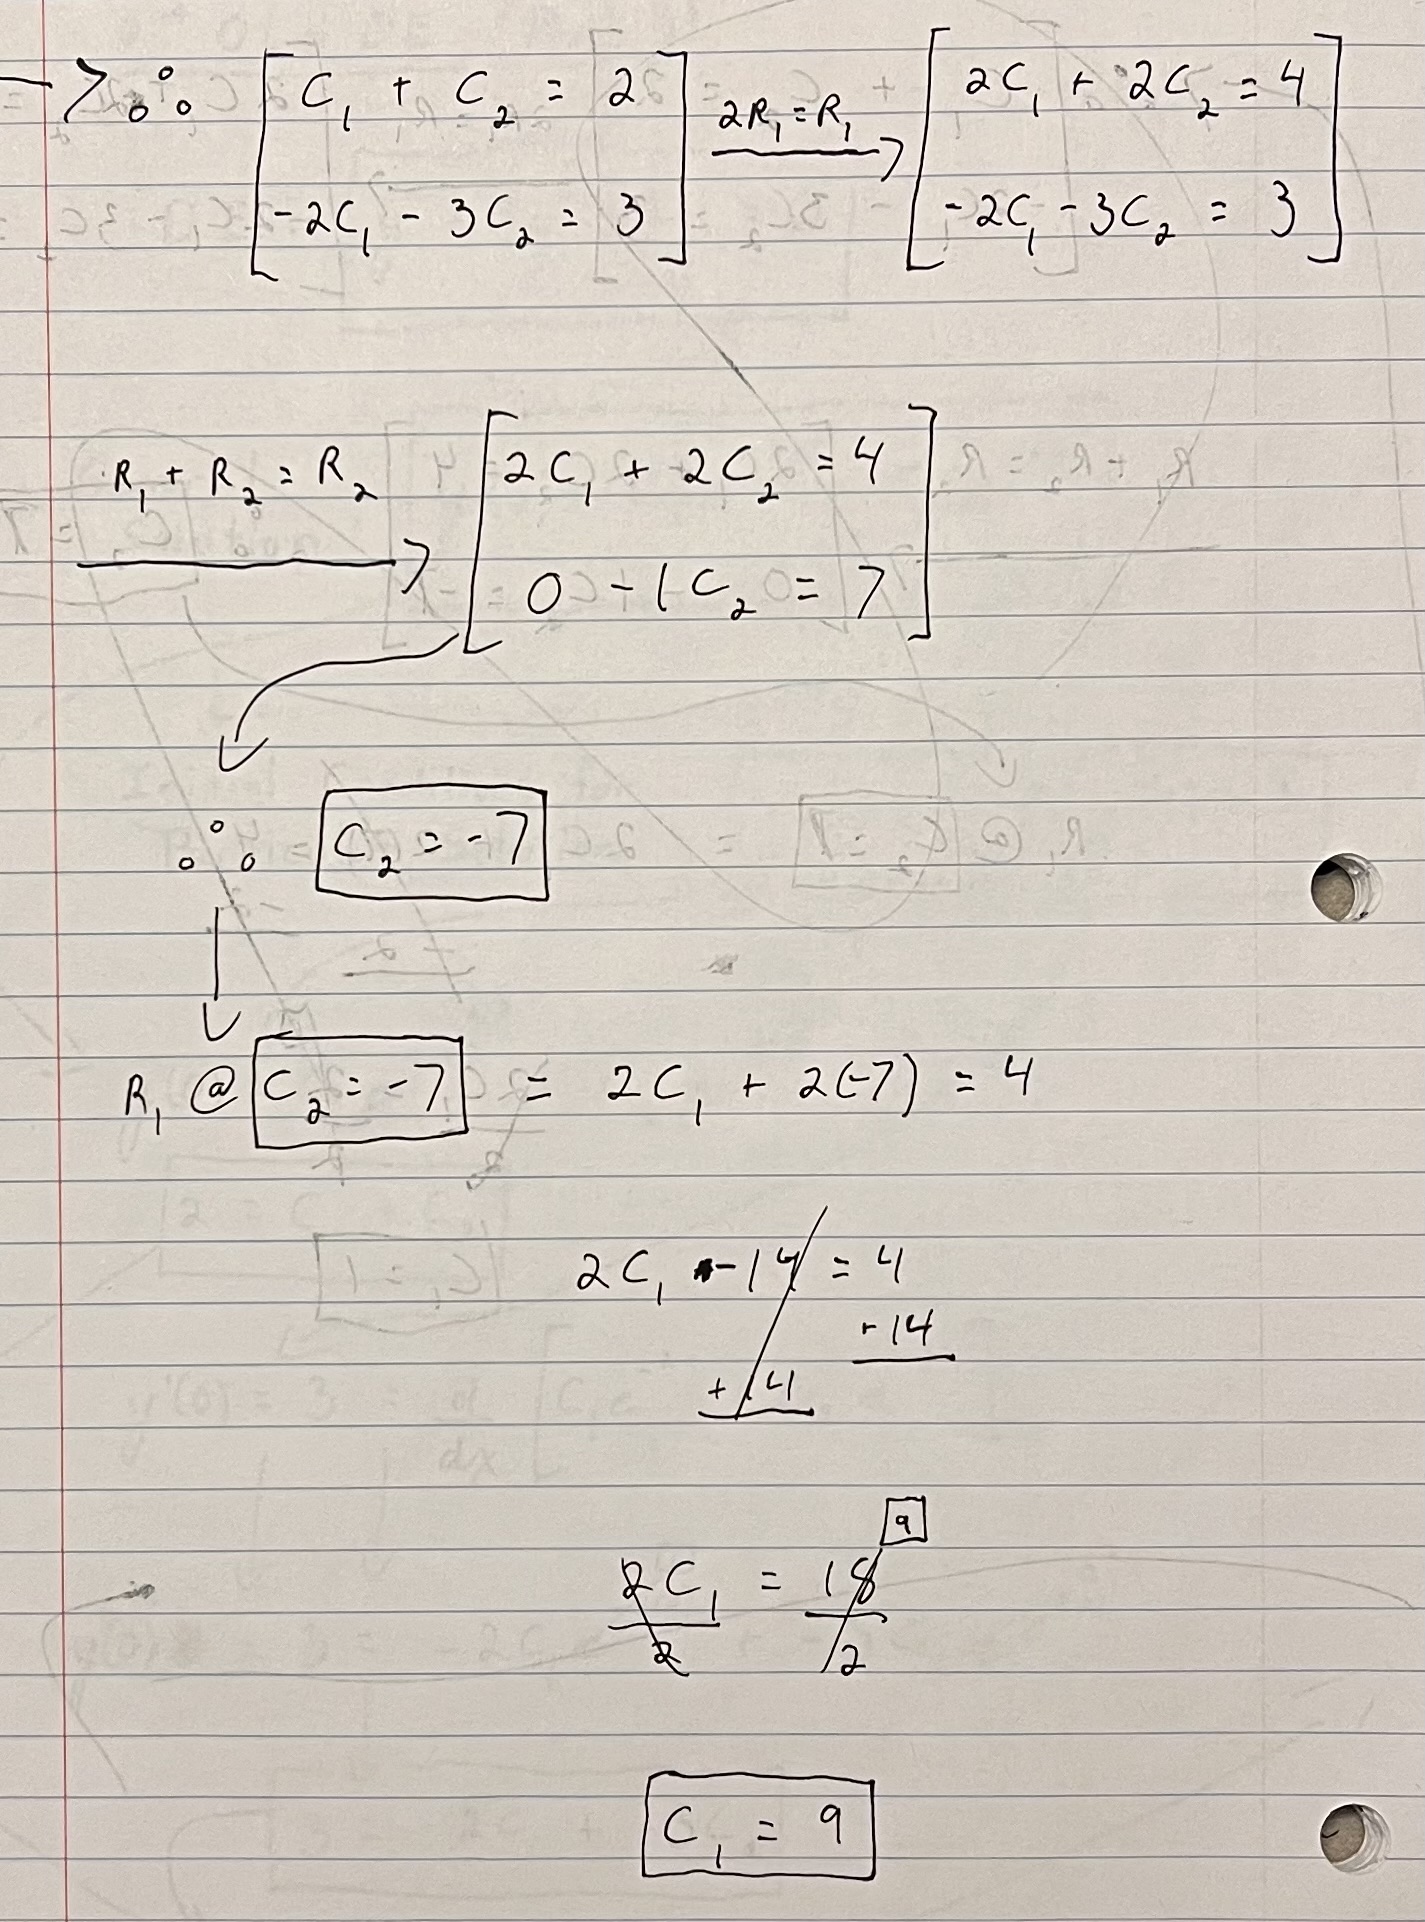 —> ∴ [ C₁ + C₂ = 2 ] 2R₁ = R₁ → [ 2C₁ + 2C₂ = 4 ]
[ -2C₁ - 3C₂ = 3 ] [ -2C₁ - 3C₂ = 3 ]
R₁ + R₂ = R₂ → [ 2C₁ + 2C₂ = 4 ]
[ 0 - 1C₂ = 7 ]
∴ C₂ = -7
R₁ @ C₂ = -7 = 2C₁ + 2(-7) = 4
2C₁ - 14 = 4
+ 14
+ 14
9
2C₁ = 18
2 2
C₁ = 9